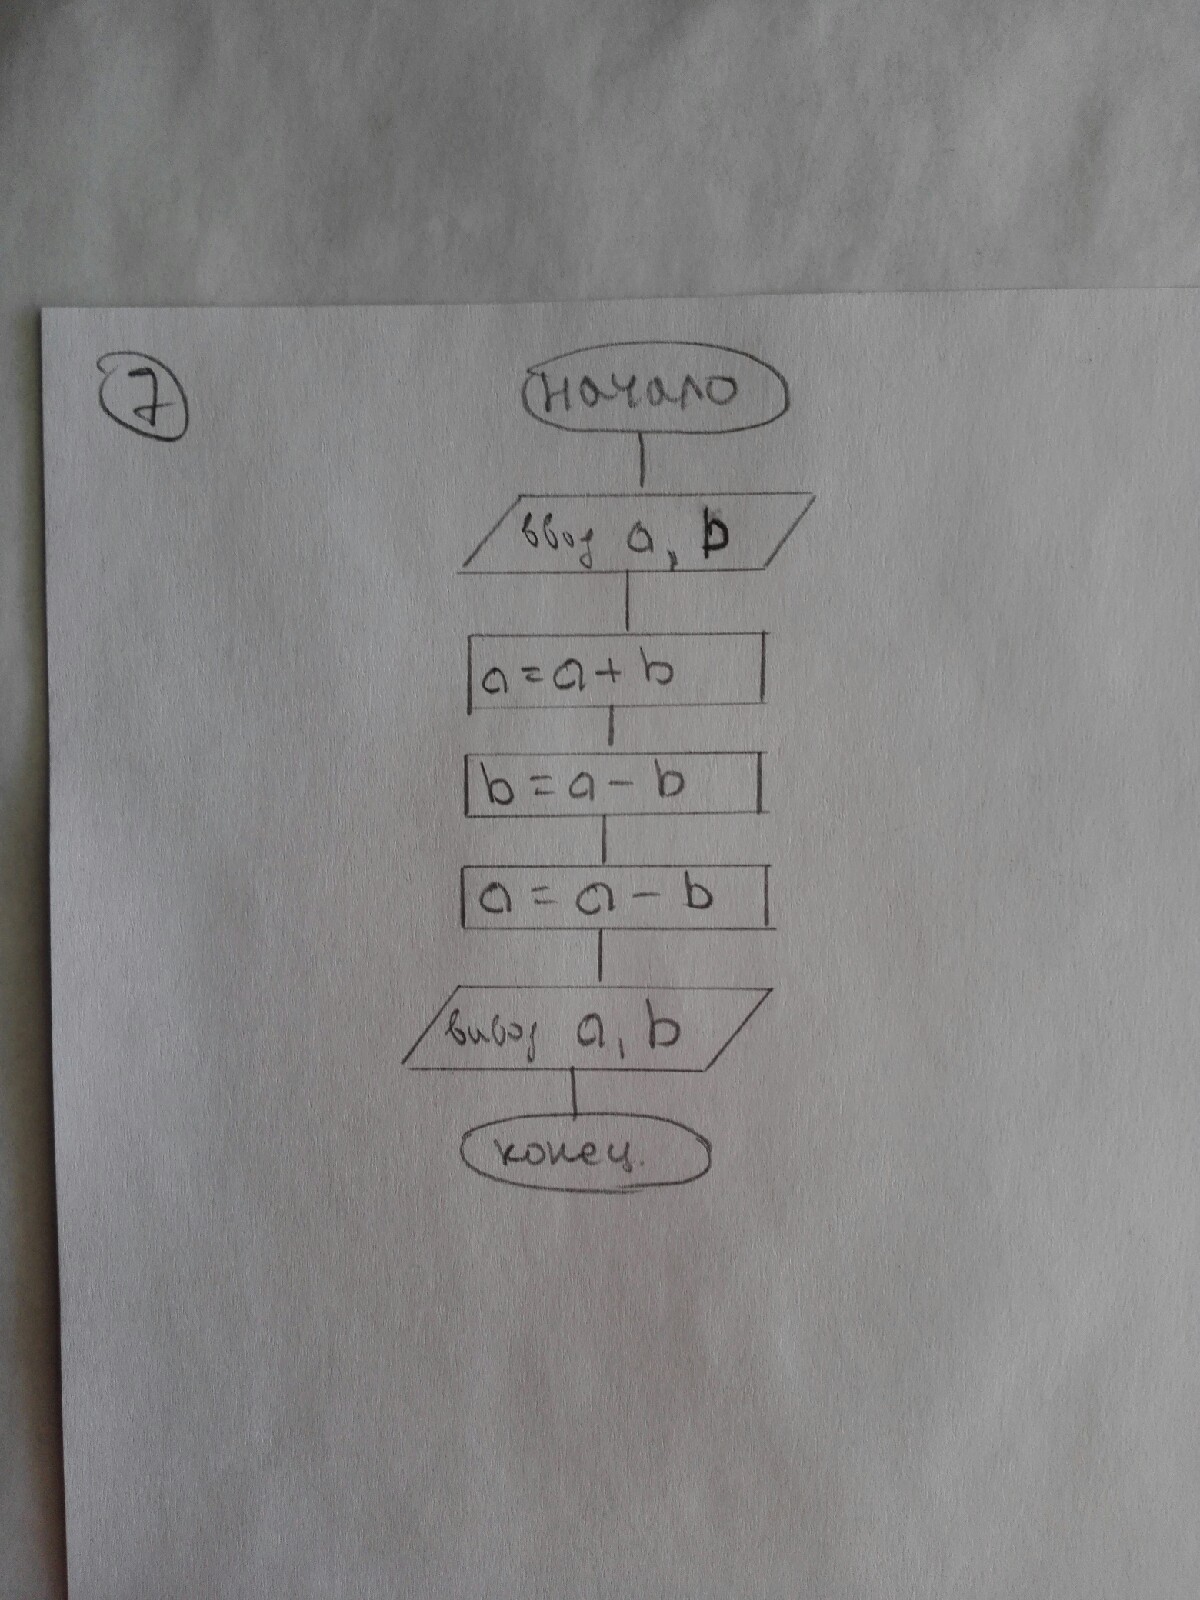 7
начало
ввод a, b
a = a + b
b = a - b
a = a - b
вивод a, b
конец.